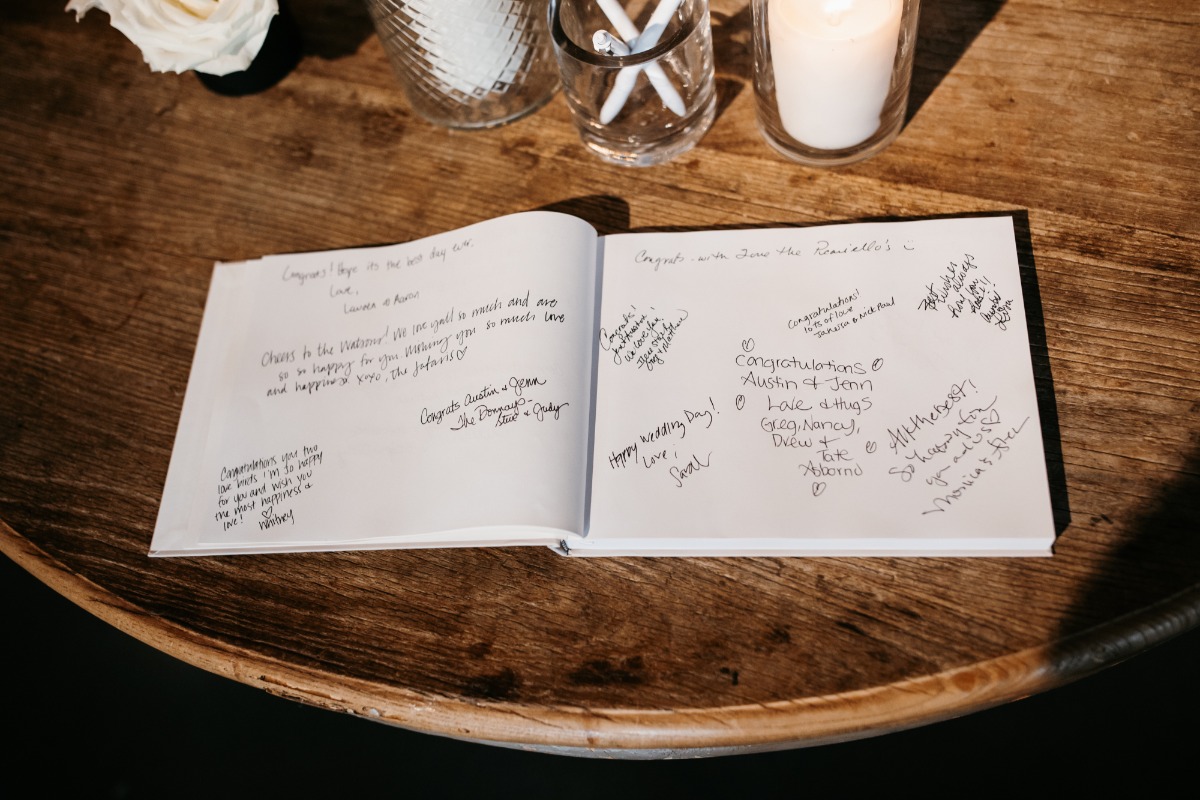 Congrats! Hope its the best day ever.
Love,
Lauren & Aaron
Cheers to the Watsons! We love yall so much and are
so so happy for you. Wishing you so much love
and happiness xoxo, the Jafaris♡
Congrats Austin & Jenn
The Donnays -
Steve & Judy
Congratulations you two
love birds I'm so happy
for you and wish you
the most happiness &
love! ♡
Whitney
Congrats - with Love the
Congrats!
We love you!
Congratulations!
lots of love
& Nick Paul
Best
wishes
always
Congratulations
Austin & Jenn
Love & Hugs
Greg, Nancy,
Drew &
Tate
Osborno
Happy Wedding Day!
Love,
Sarah
All the Best!
So happy for
you and us♡
Monica &